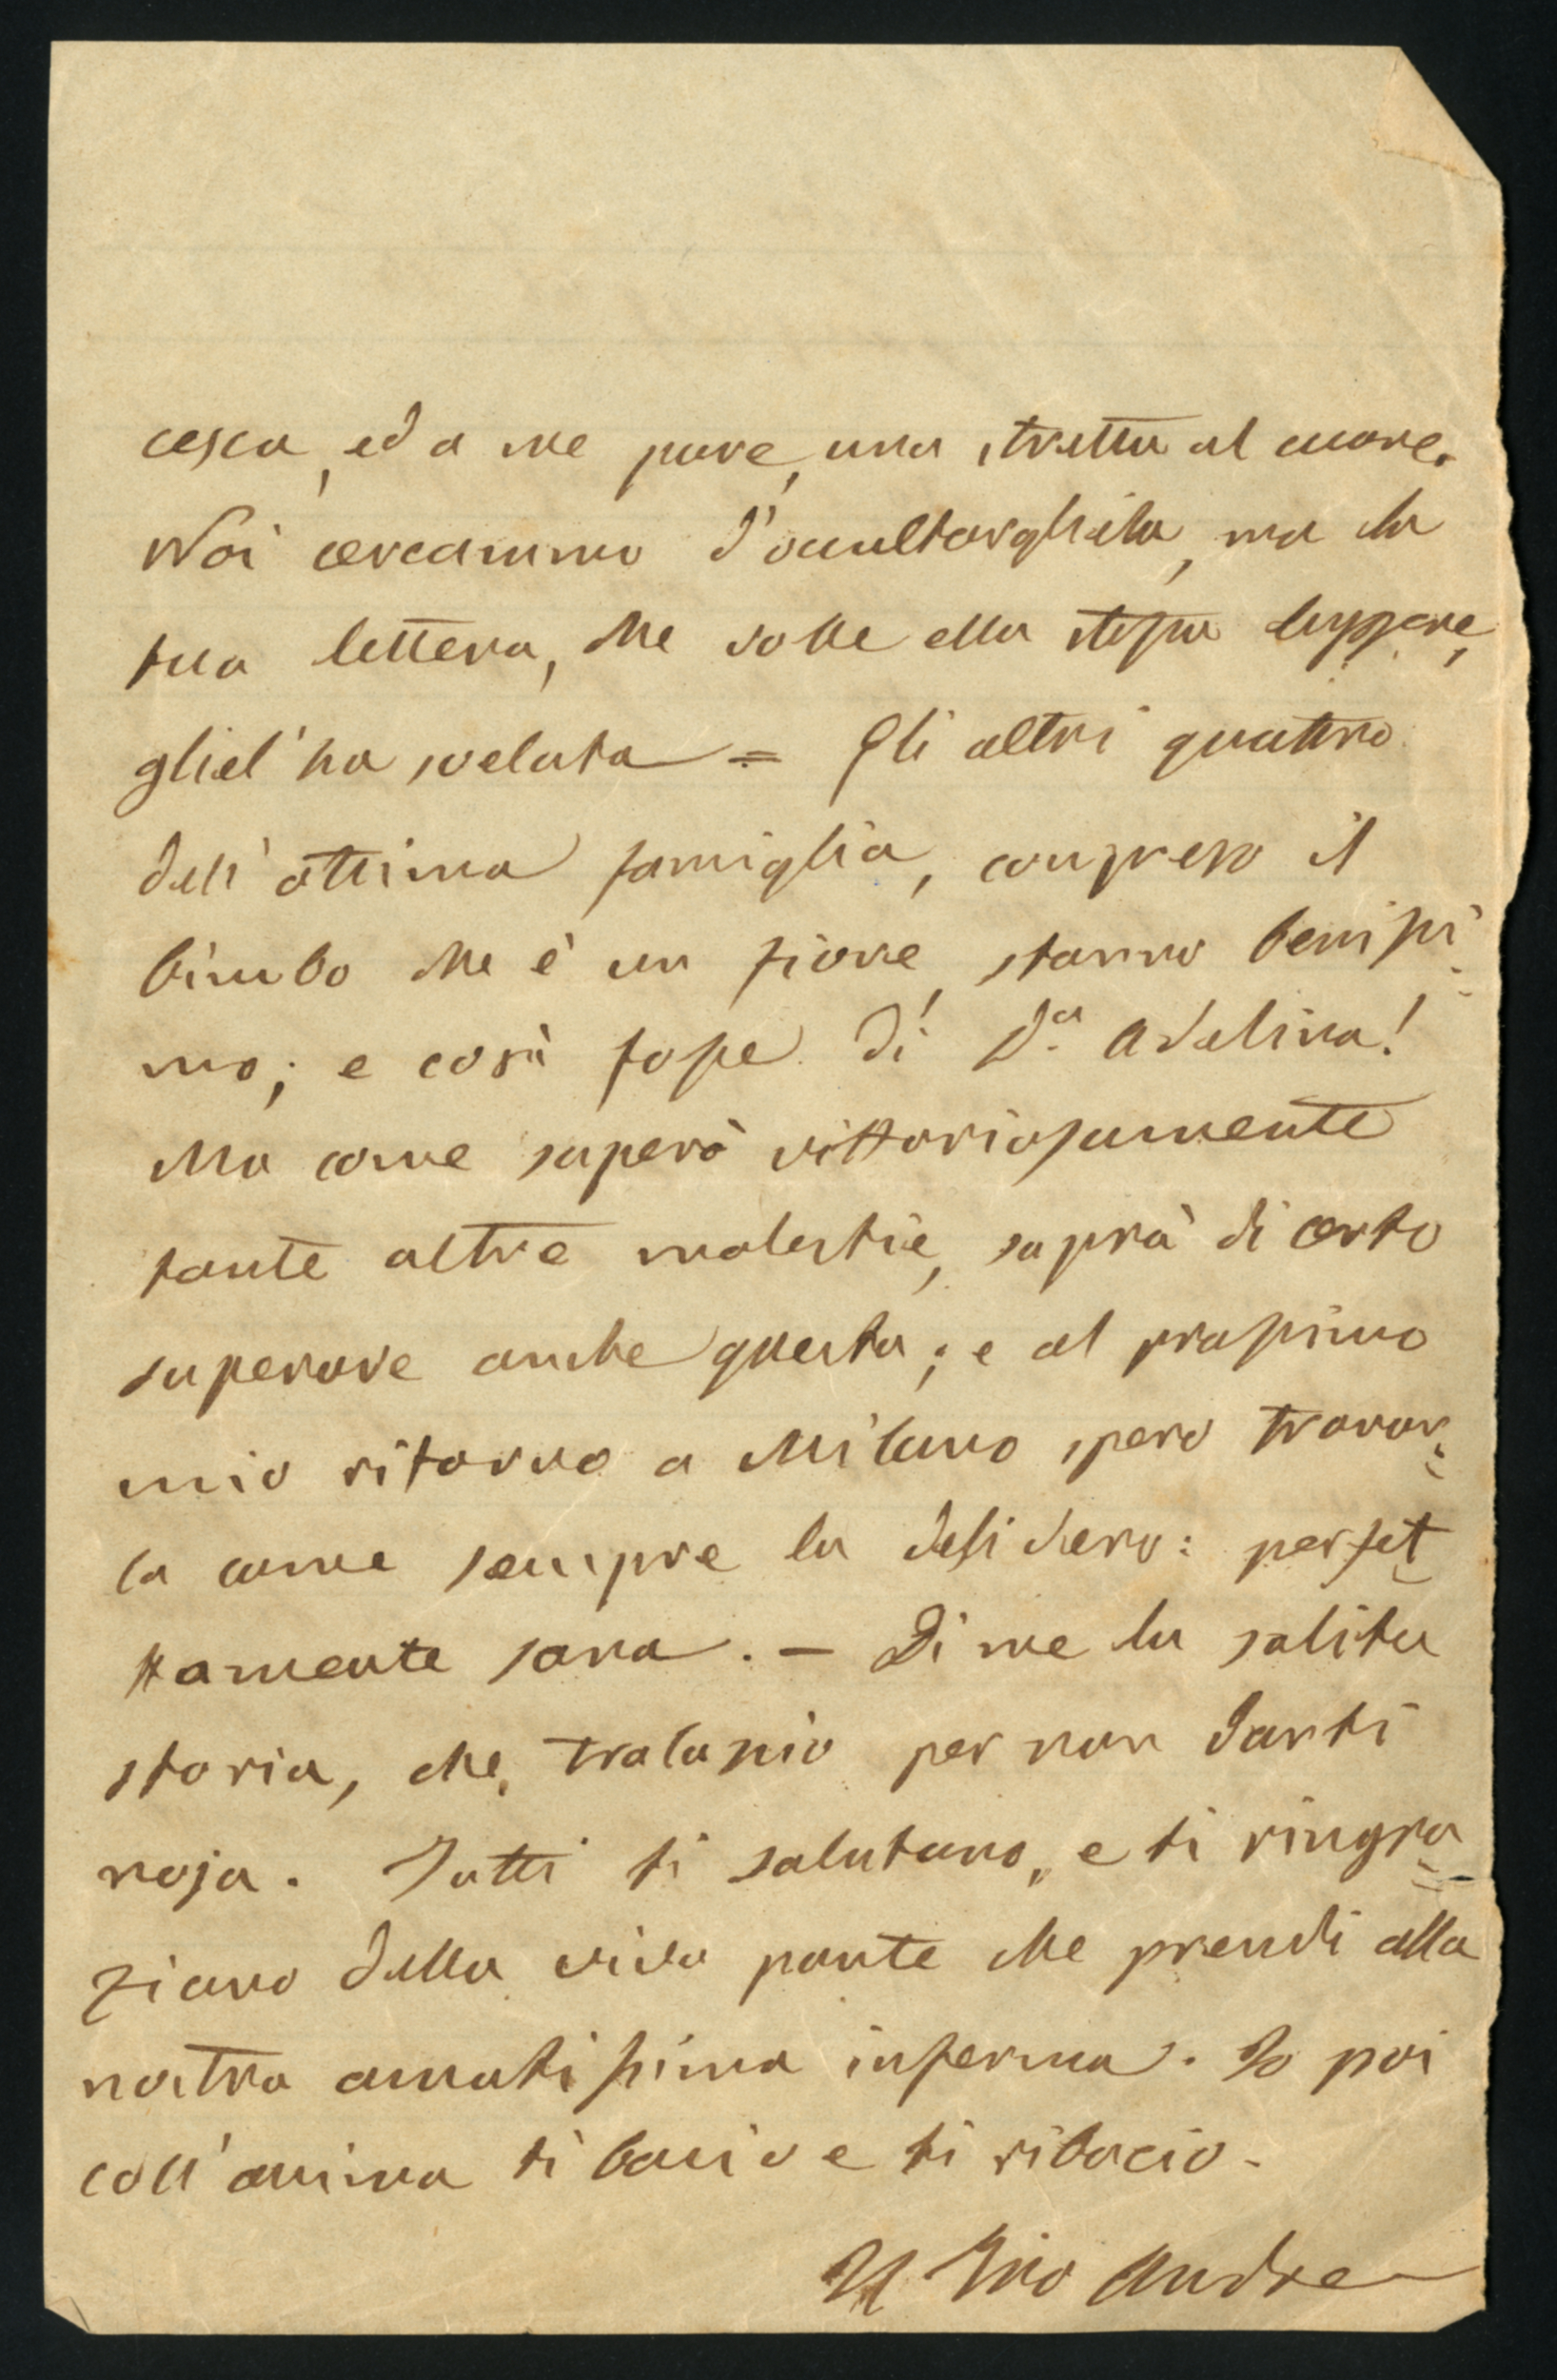 cesca, ed a me pure, una stretta al cuore.
Noi cercammo d'occultargliela, ma la
tua lettera, che volle ella stessa leggere,
gliel'ha svelata = Gli altri quattro
dell'ottima famiglia, compreso il
bimbo che è un fiore, stanno benissi-
mo; e così fosse di D.a Adelina!
Ma come superò vittoriosamente
tante altre molestie, saprà di certo
superare anche questa; e al prossimo
mio ritorno a Milano spero trovar=
la come sempre la desidero: perfet-
tamente sana. – Di me la solita
storia, che tralascio per non darti
noja. Tutti ti salutano, e ti ringra=
ziano della viva parte che prendi alla
nostra amatissima inferma. Io poi
coll'anima ti bacio e ti ribacio.
Il Tuo Andrea